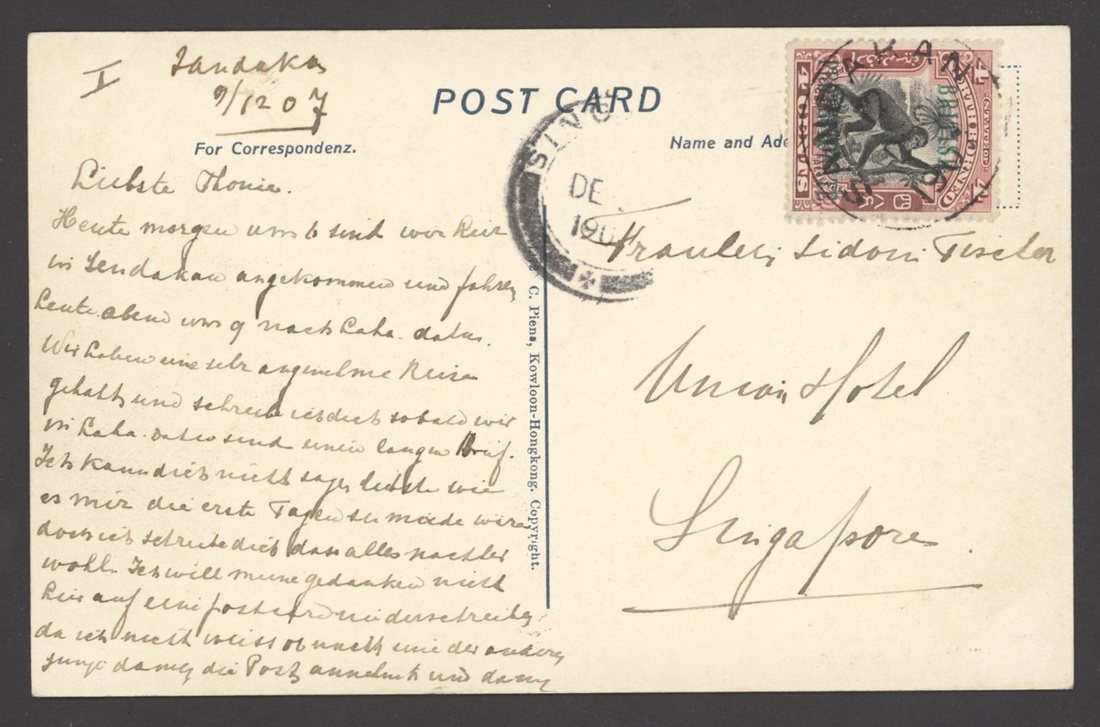 I
Sandakan
9/12 07
POST CARD
For Correspondenz.
Name and Add
SANDAKAN
BRITISH
SING
DE
190
Liebste Thonia.
Heute morgen um 6 sind wir hier
in Sandakan angekommen und fahren
heute abend um 9 nach Laha datu.
Wir haben eine sehr angenehme Reise
gehabt und schreibe ich dich sobald wir
in Laha datu sind einen langen Brief.
Ich kann dich nicht sagen liebste wie
es mir die erste Tagen zu mode ware
doch ich schreibe dich dass alles nachher
wohl. Ich will meine gedanken nicht
hier auf eine postcard niederschreiben
da ich nicht weiss ob nicht eine der andere
junge damen die Post annehmt und dann
Fraulein Sidoni Fischer
Union Hotel
Singapore
C. Piens, Kowloon-Hongkong. Copyright.